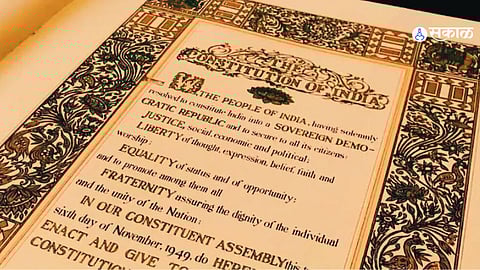 सकाळ
THE
CONSTITUTION OF INDIA
WE, THE PEOPLE OF INDIA, having solemnly
resolved to constitute India into a SOVEREIGN DEMO-
CRATIC REPUBLIC and to secure to all its citizens:
JUSTICE, social, economic and political;
LIBERTY of thought, expression, belief, faith and
worship;
EQUALITY of status and of opportunity;
and to promote among them all
FRATERNITY assuring the dignity of the individual
and the unity of the Nation;
IN OUR CONSTITUENT ASSEMBLY this
sixth day of November, 1949, do
ENACT AND GIVE TO